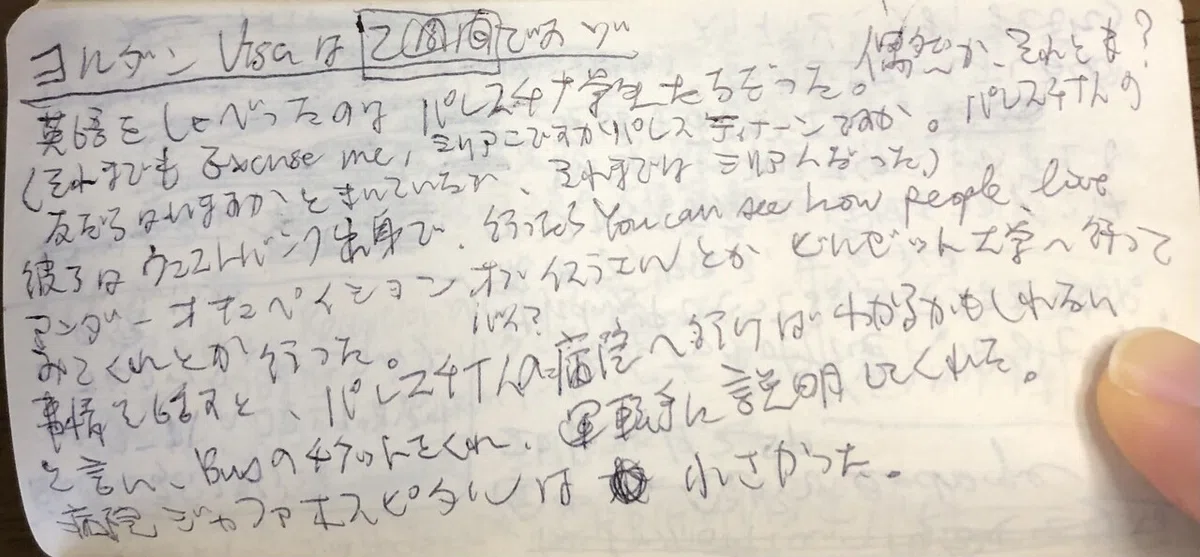 ヨルダン Visaは 2週間ですが
偶然か、それとも?
英語をしゃべったのは パレスチナ学生たちだった。
(それまでも Excuse me, シリアンですかパレスティナーンですか。パレスチナ人の
友だちはいますかときいているが、それまではシリア人だった)
彼らはウエストバンク出身で、行ったら You can see how people live
アンダーオキュペイションオブイスラエルとか ビルゼット大学へ行って
みてくれとか行った。
バス?
事情を話すと、パレスチナ人の病院へ行けばわかるかもしれない
と言い、Busのチケットをくれ、運転手に説明してくれた。
病院ジャファホスピタルは 小さかった。